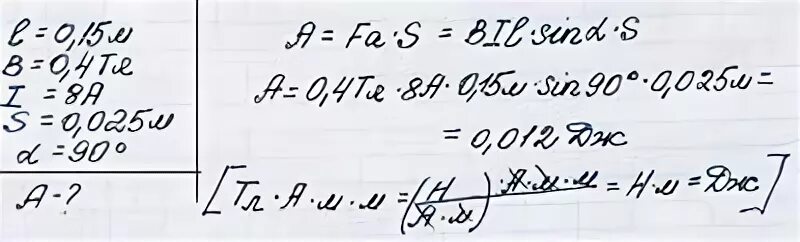 l = 0,15 м
B = 0,4 Тл
I = 8 А
S = 0,025 м
α = 90°
A - ?
A = Fa · S = BIl · sinα · S
A = 0,4 Тл · 8 А · 0,15 м · sin 90° · 0,025 м =
= 0,012 Дж
[Тл · А · м · м = (Н / А · м) · А · м · м = Н · м = Дж]